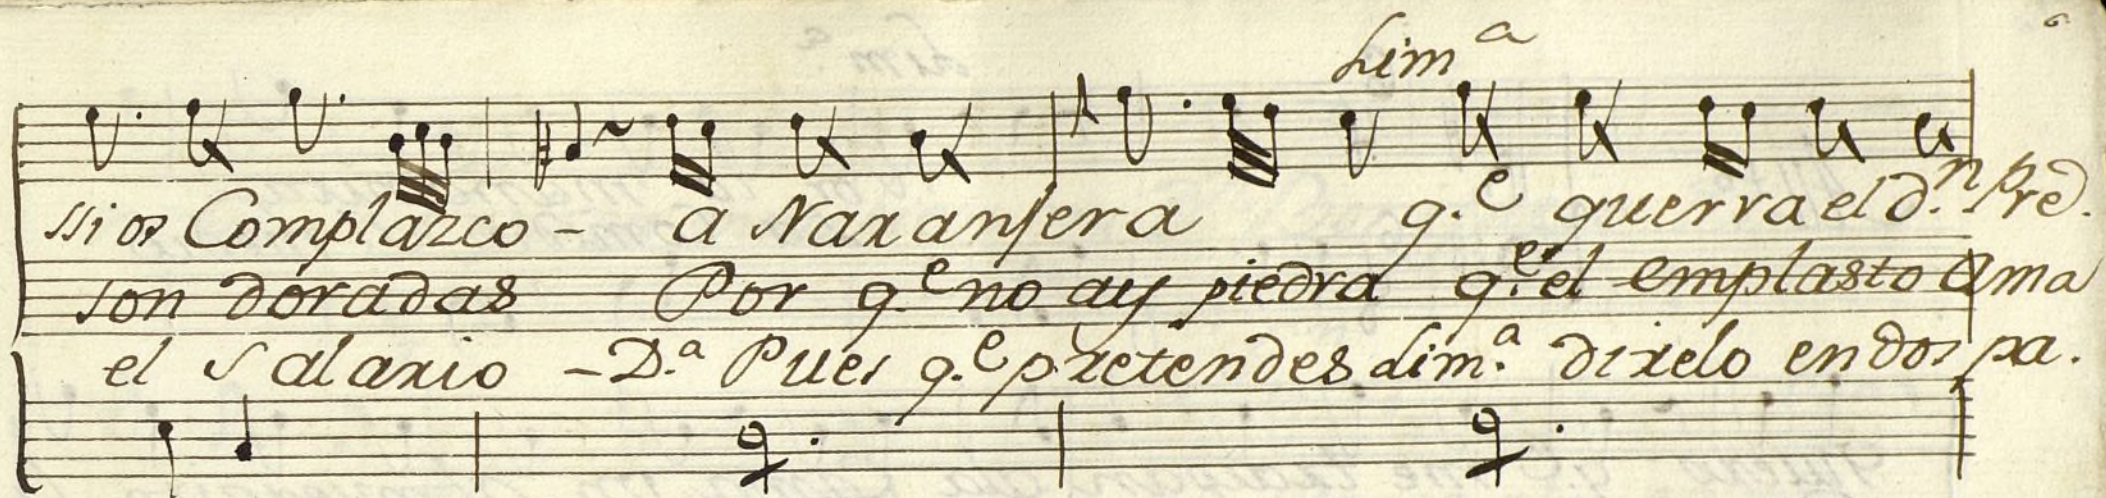 6.
Lim.ª
ssi os Complazco - a Naranjera q.e querra el d.n pred.
son doradas Por q.e no ay piedra q.e el emplasto ama
el Salario - D.ª Pues q.e pretendes Lim.ª direlo en dos pa.